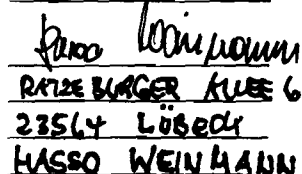 Hasso Weinmann
RATZEBURGER ALLEE 6
23564 LÜBECK
HASSO WEINMANN